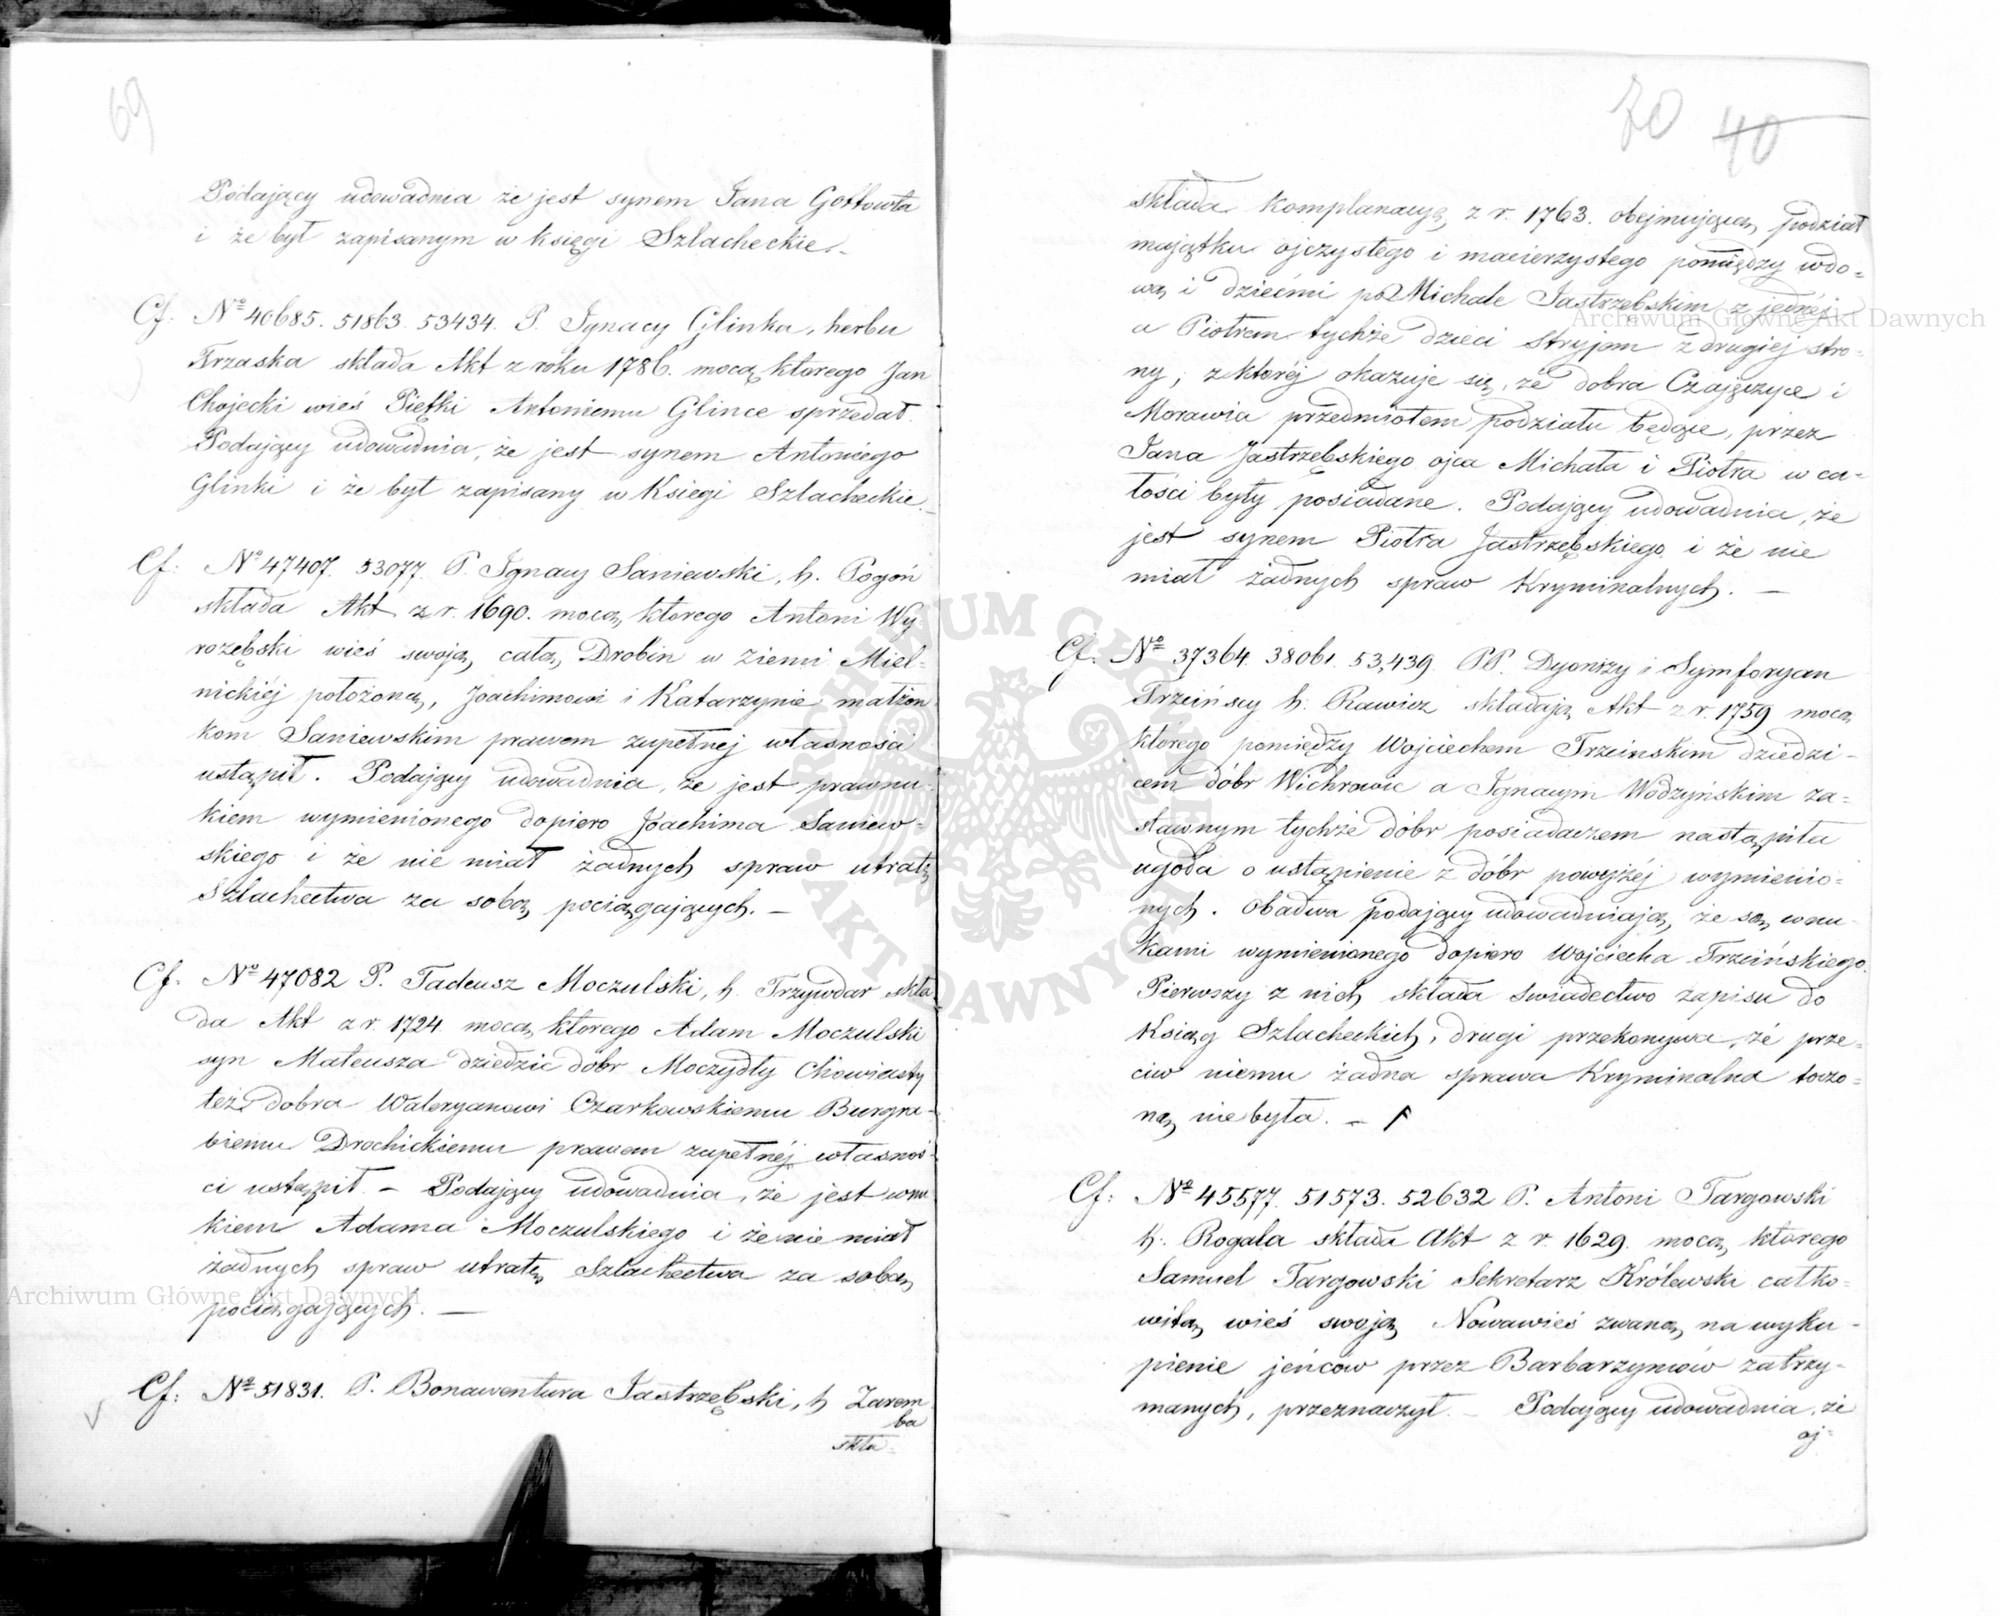 69
Podający udowadnia że jest synem Jana Gottowta
i że był zapisanym w księgi Szlacheckie.
Cf. Nº 40685. 51863. 53434. P. Ignacy Glinka, herbu
Trzaska składa Akt z roku 1786. mocą którego Jan
Chojecki wieś Piętki Antoniemu Glince sprzedał.
Podający udowadnia, że jest synem Antoniego
Glinki i że był zapisany w Księgi Szlacheckie.
Cf: Nº 47407. 53077. P. Ignacy Saniewski, h. Pogoń
składa Akt z r. 1690. mocą którego Antoni Wy
rozębski wieś swoją całą Drobin w Ziemi Miel=
nickiéj położoną, Joachimowi i Katarzynie małżon
kom Saniewskim prawem zupełnej własności
ustąpił. Podający udowadnia, że jest prawnu=
kiem wymienionego dopiero Joachima Saniew=
skiego i że nie miał żadnych spraw utratę
Szlachectwa za sobą pociągających. —
Cf. Nº 47082 P. Tadeusz Moczulski, h. Trzywdar skła
da Akt z r. 1724 mocą którego Adam Moczulski
syn Mateusza dziedzic dóbr Moczydły
też dobra Waleryanowi Czarkowskiemu Burgra=
biemu Drochickiemu prawem zupełnéj własnoś=
ci ustąpił. — Podający udowadnia, że jest wnu
kiem Adama Moczulskiego i że nie miał
żadnych spraw utratę Szlachectwa za sobą
pociągających. —
Cf: Nº 51831. P. Bonawentura Jastrzębski, h Zarem
ba
skła=
70 40
składa Komplanacyą z r. 1763. obejmującą podział
majątku ojczystego i macierzystego pomiędzy wdo=
wą i dziećmi po Michale Jastrzębskim z jednéj
a Piotrem tychże dzieci stryjem z drugiej stro=
ny, z któréj okazuje się, że dobra Czajęczyce i
Morawia przedmiotem podziału będące, przez
Jana Jastrzębskiego ojca Michała i Piotra w ca=
łości były posiadane. Podający udowadnia, że
jest synem Piotra Jastrzębskiego i że nie
miał żadnych spraw Kryminalnych. —
Cf: Nº 37364. 38061. 53,439. PP. Dyonizy i Symforyan
Trzcińscy h. Rawicz składają Akt z r. 1759 mocą
którego pomiędzy Wojciechem Trzcinskim dziedzi=
cem dóbr Wichrowic a Ignacym Wodzyńskim za=
stawnym tychże dóbr posiadaczem nastąpiła
ugoda o ustąpienie z dóbr powyżéj wymienio=
nych. Obadwa podający udowadniają, że są wnu=
kami wymienionego dopiero Wojciecha Trzcińskiego.
Pierwszy z nich składa świadectwo zapisu do
Ksiąg Szlacheckich, drugi przekonywa, że prze=
ciw niemu żadna sprawa Kryminalna toczo=
ną nie była. —
Cf: Nº 45577. 51573. 52632 P. Antoni Targowski
h. Rogala składa Akt z r. 1629. mocą którego
Samuel Targowski Sekretarz Królewski całko=
witą wieś swoją Nowawieś zwaną na wyku=
pienie jeńców przez Barbarzyńców zatrzy=
manych, przeznaczył. — Podający udowadnia, że
oj=
Archiwum Główne Akt Dawnych
Archiwum Główne Akt Dawnych
ARCHIWUM GŁÓWNE · AKT DAWNYCH ·